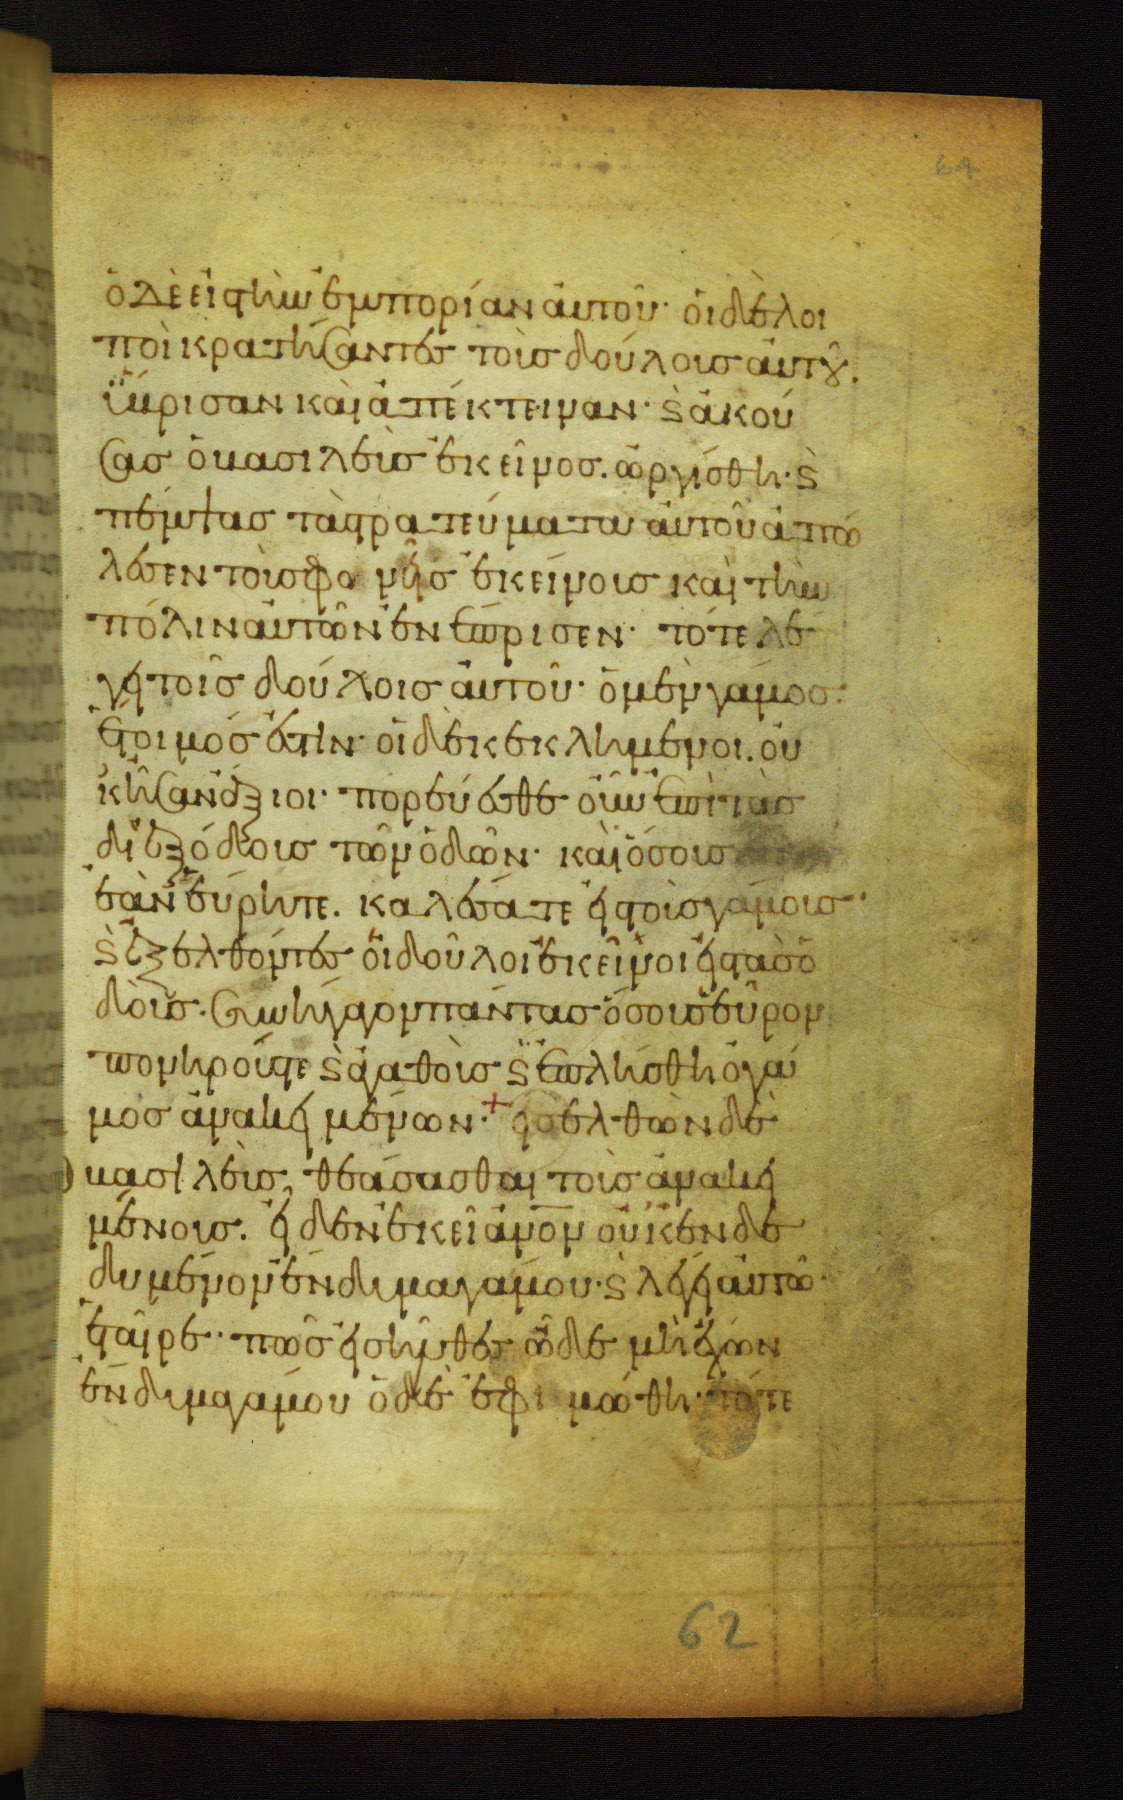 64
ὁ δὲ εἰς τὴν ἐμπορίαν αὐτοῦ· οἱ δὲ λοι
ποὶ κρατήσαντες τοὺς δούλους αὐτοῦ.
ὕβρισαν καὶ ἀπέκτειναν· ϗ ἀκού
σας ὁ βασιλεὺς ἐκεῖνος. ὠργίσθη· ϗ
πέμψας τὰ στρατεύματα αὐτοῦ ἀπώ
λεσεν τοὺς φονεῖς ἐκείνους καὶ τὴν
πόλιν αὐτῶν ἐνέπρισεν· τότε λέ
γει τοῖς δούλοις αὐτοῦ· ὁ μὲν γάμος
ἕτοιμός ἐστιν· οἱ δὲ κεκλημένοι. οὐ
κ ἦσαν ἄξιοι· πορεύεσθε οὖν ἐπὶ τὰς
διεξόδους τῶν ὁδῶν· καὶ ὅσους
ἐὰν εὕρητε. καλέσατε εἰς τοὺς γάμους·
ϗ ἐξελθόντες οἱ δοῦλοι ἐκεῖνοι εἰς τὰς ὁ
δοὺς. συνήγαγον πάντας ὅσους εὗρον
πονηρούς τε ϗ ἀγαθοὺς ϗ ἐπλήσθη ὁ γά
μος ἀνακειμένων·+ εἰσελθὼν δὲ
ὁ βασιλεὺς, θεάσασθαι τοὺς ἀνακει
μένους. εἶδεν ἐκεῖ ἄνον οὐκ ἐνδε
δυμένον ἔνδυμα γάμου· ϗ λέγει αὐτῷ·
ἑταῖρε· πῶς εἰσῆλθες ὧδε μὴ ἔχων
ἔνδυμα γάμου ὁ δὲ ἐφιμώθη· τότε
62